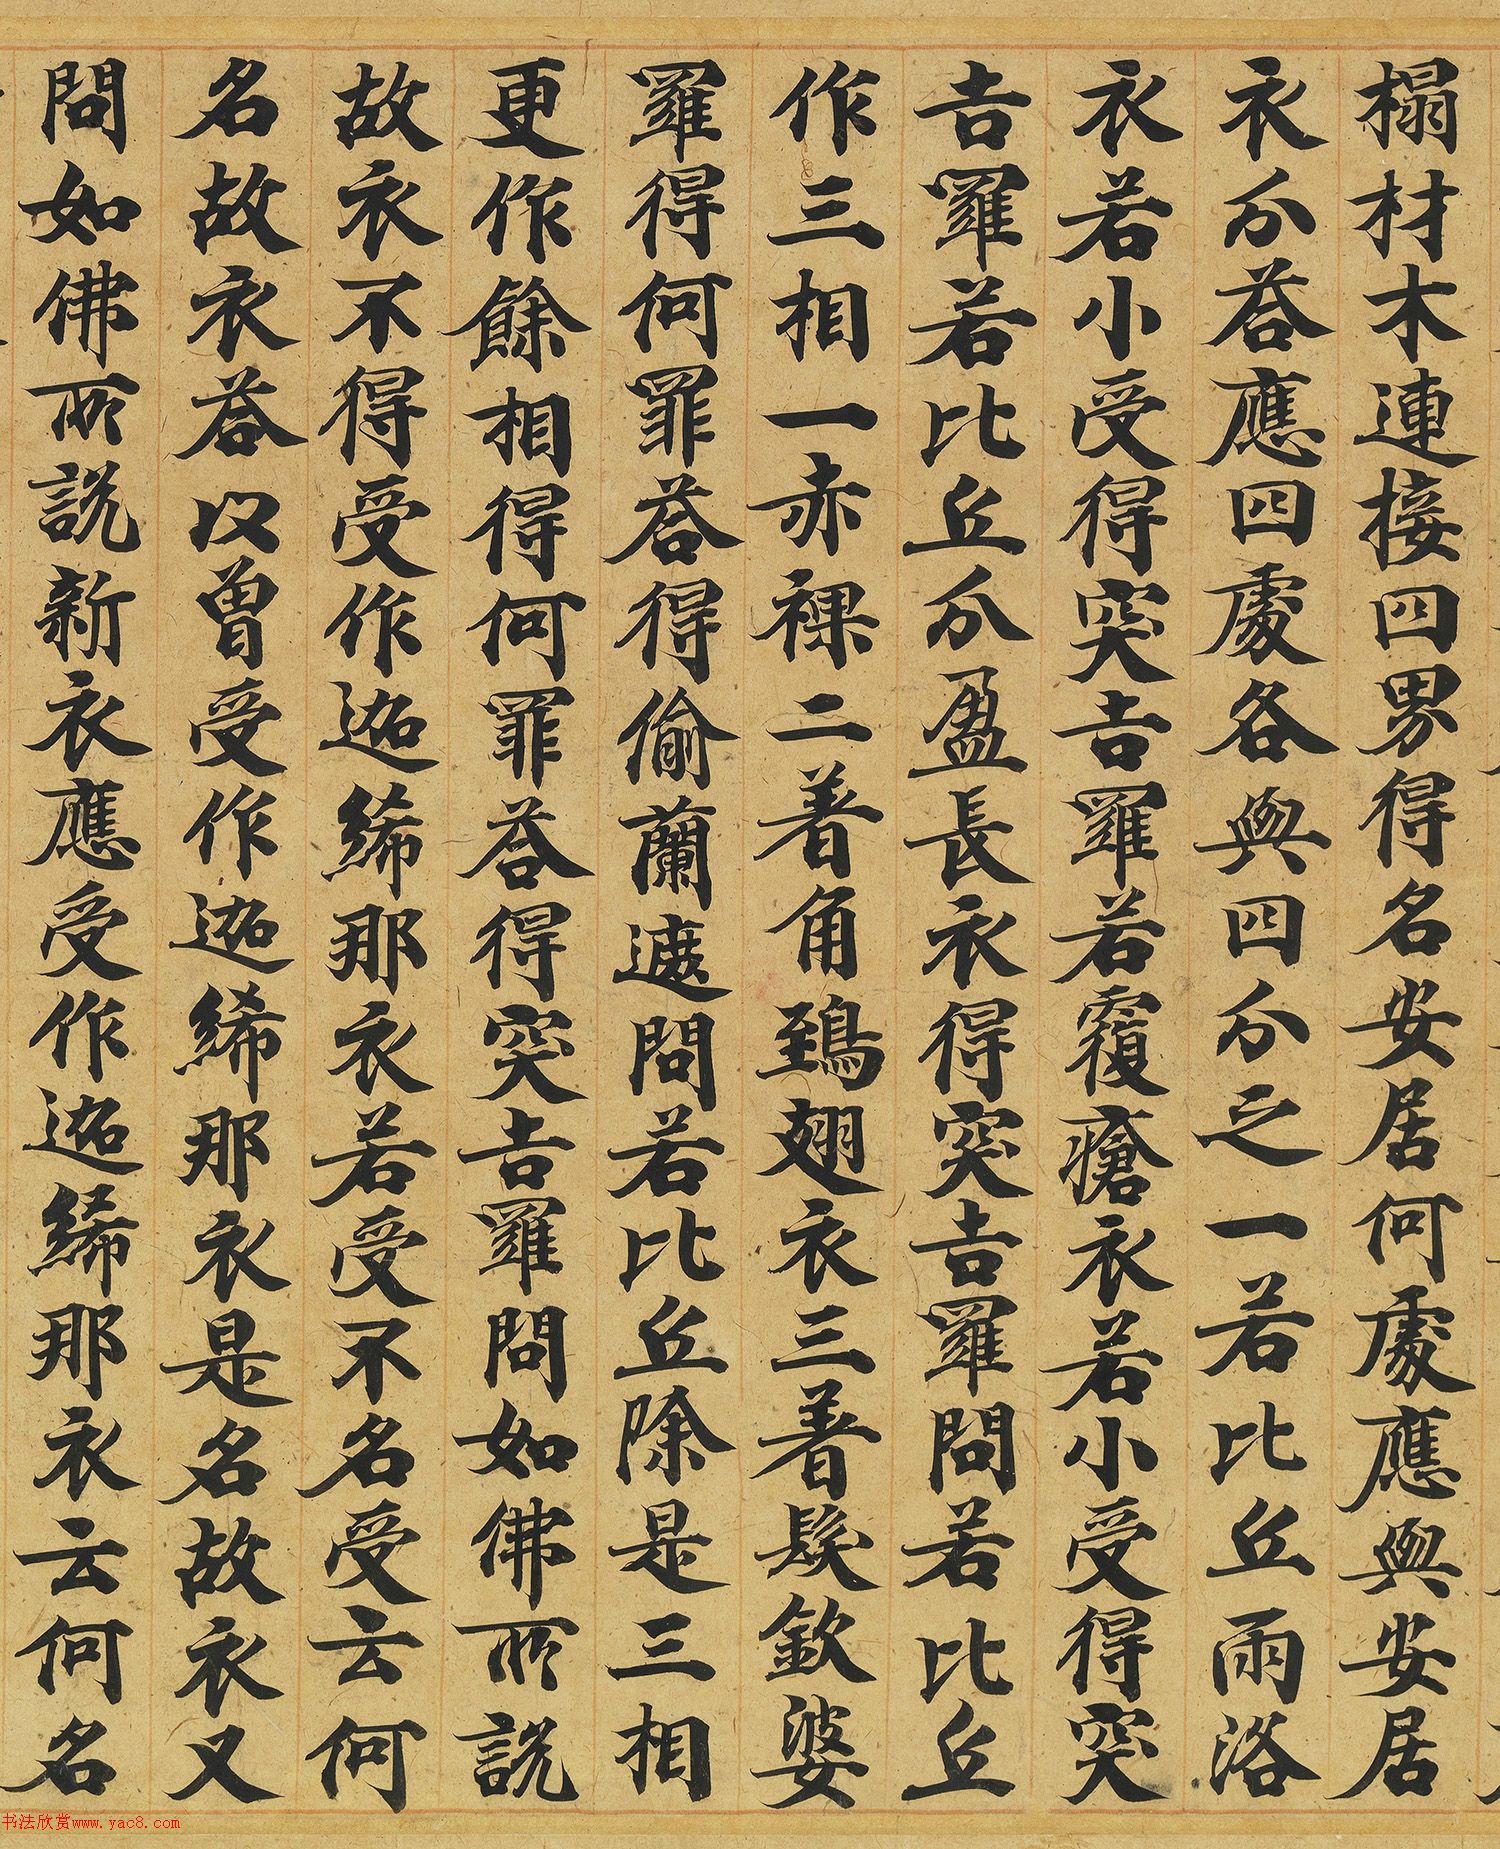 榻材木連接四界得名安居何處應與安居
衣分荅應四處各與四分之一若比丘雨浴
衣若小受得突吉羅若覆瘡衣若小受得突
吉羅若比丘分盈長衣得突吉羅問若比丘
作三相一赤裸二着角鵄翅衣三着髮欽婆
羅得何罪荅得偷蘭遮問若比丘除是三相
更作餘相得何罪荅得突吉羅問如佛所說
故衣不得受作迦絺那衣若受不名受云何
名故衣荅以曾受作迦絺那衣是名故衣又
問如佛所說新衣應受作迦絺那衣云何名
书法欣赏www.yac8.com